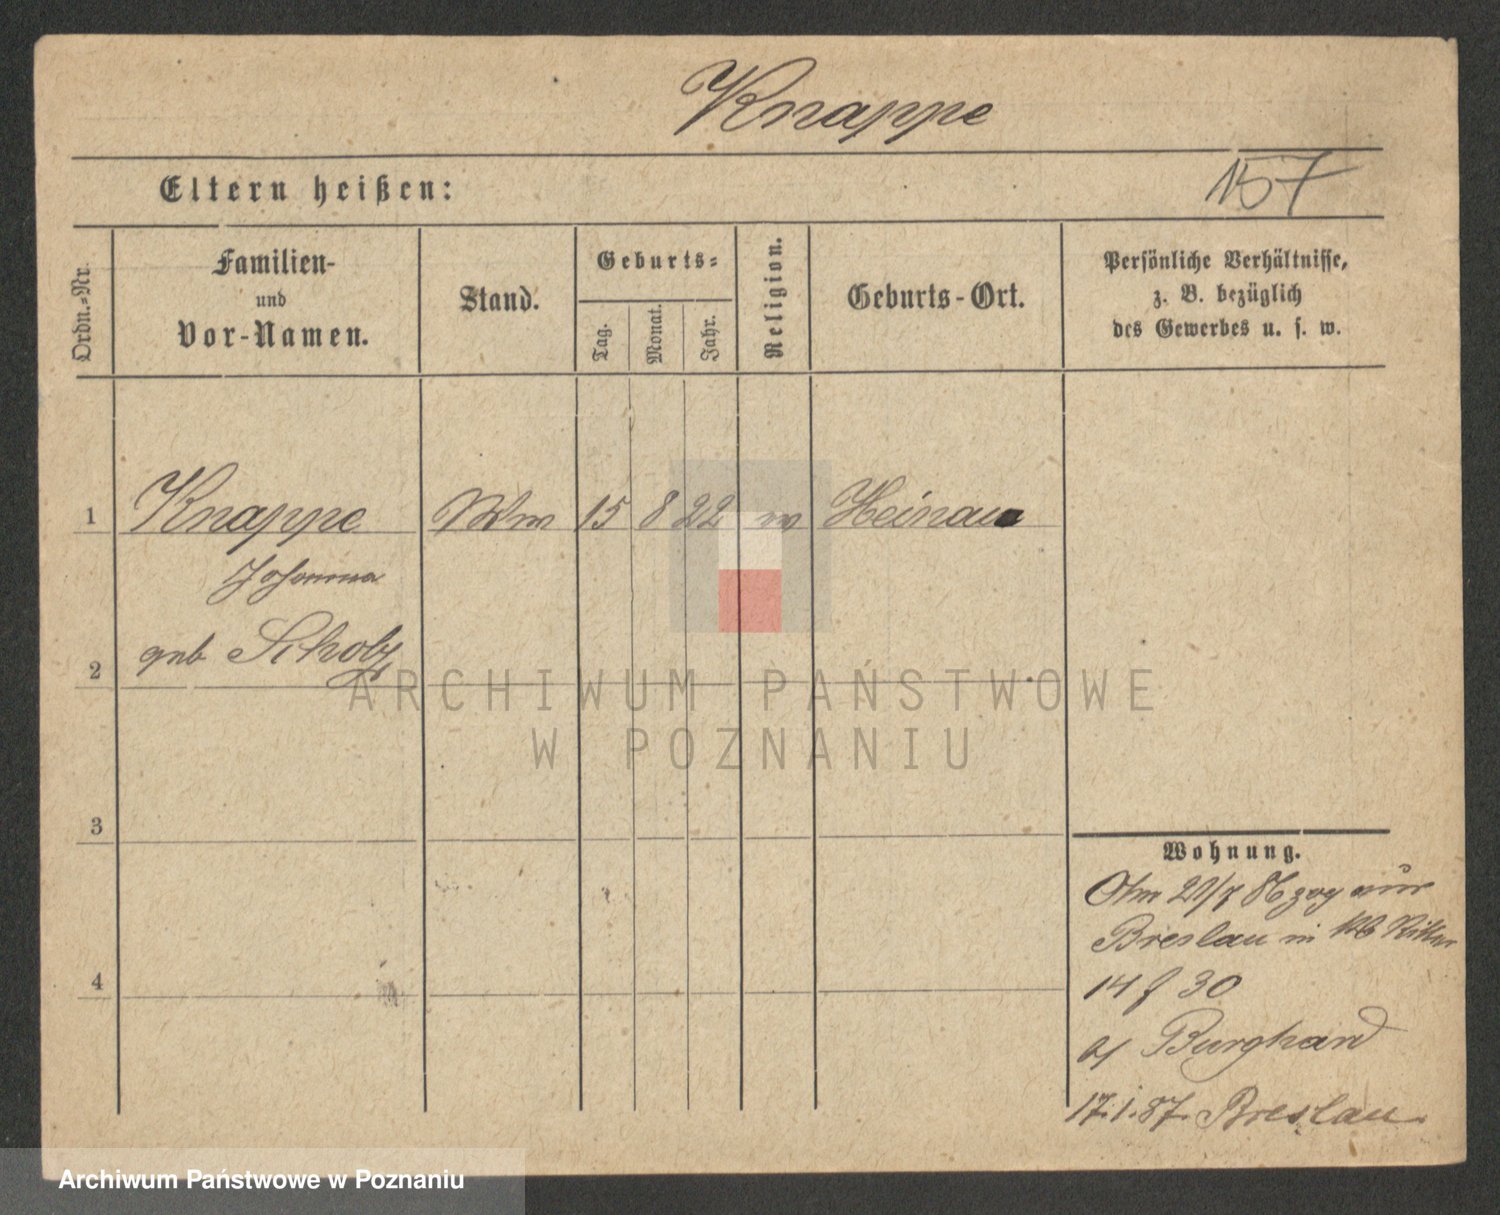 Knappe
Eltern heißen:
157
Ordn.-Nr.
Familien-
und
Vor-Namen.
Stand.
Geburts-
Tag.
Monat.
Jahr.
Religion.
Geburts-Ort.
Persönliche Verhältnisse,
z. B. bezüglich
des Gewerbes u. s. w.
1
Knappe
Wwe
15
8
22
Heinau
Johanna
geb Scholz
2
ARCHIWUM PAŃSTWOWE
W POZNANIU
3
Wohnung.
21/7 86 zog aus
Breslau in
4
14 f 30
b/ Burghard
17.1.87. Breslau.
Archiwum Państwowe w Poznaniu